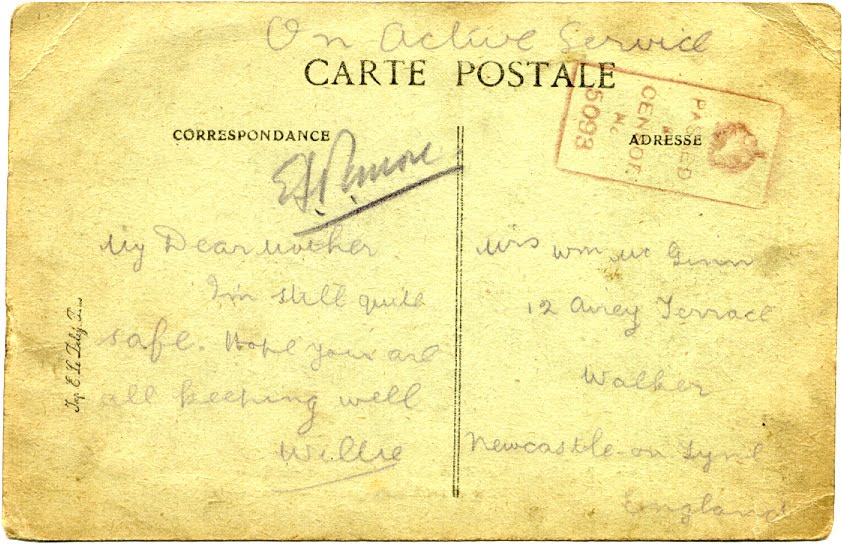 On Active Service
CARTE POSTALE
PASSED
CENSOR
No
5093
CORRESPONDANCE
ADRESSE
My Dear Mother
I'm still quite
safe. Hope your are
all keeping well
Willie
Mrs Wm Mc Ginn
12 Airey Terrace
Walker
Newcastle-on Tyne
England
Imp. E. Le